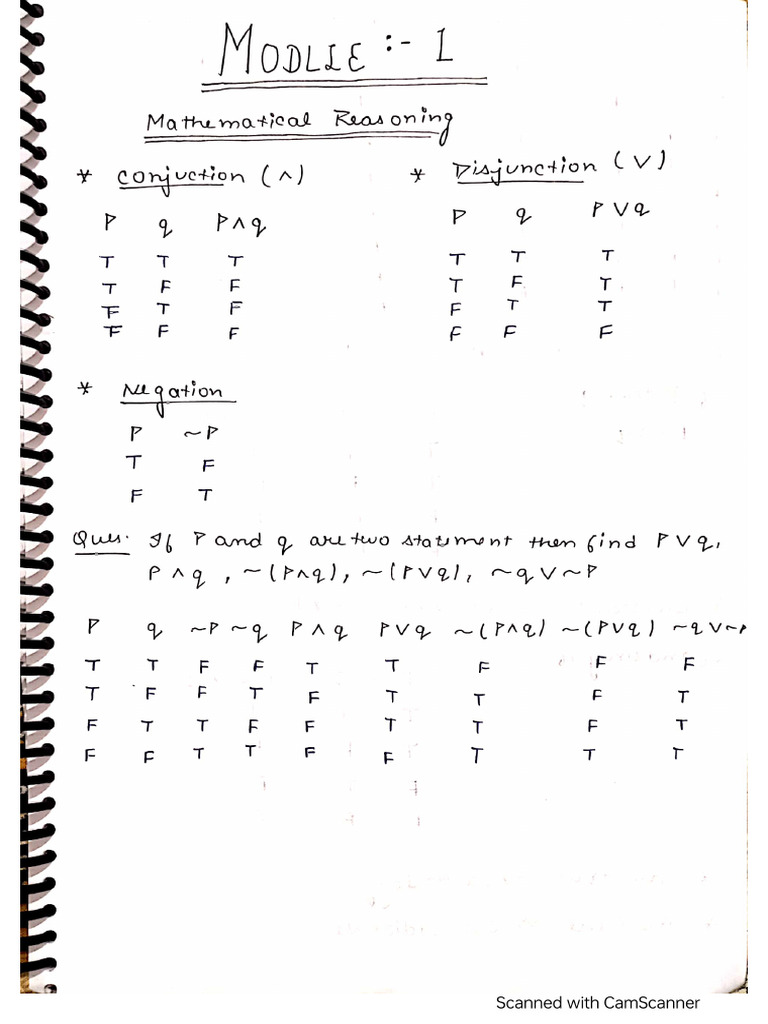 MODLIE :- 1
Mathematical Reasoning
* Conjuction (∧)
P q P∧q
T T T
T F F
F T F
F F F
* Disjunction (∨)
P q P∨q
T T T
T F T
F T T
F F F
* Negation
P ~P
T F
F T
Ques. If P and q are two statement then find P∨q,
P∧q, ~(P∧q), ~(P∨q), ~q∨~P
P q ~P ~q P∧q P∨q ~(P∧q) ~(P∨q) ~q∨~P
T T F F T T F F F
T F F T F T T F T
F T T F F T T F T
F F T T F F T T T
Scanned with CamScanner